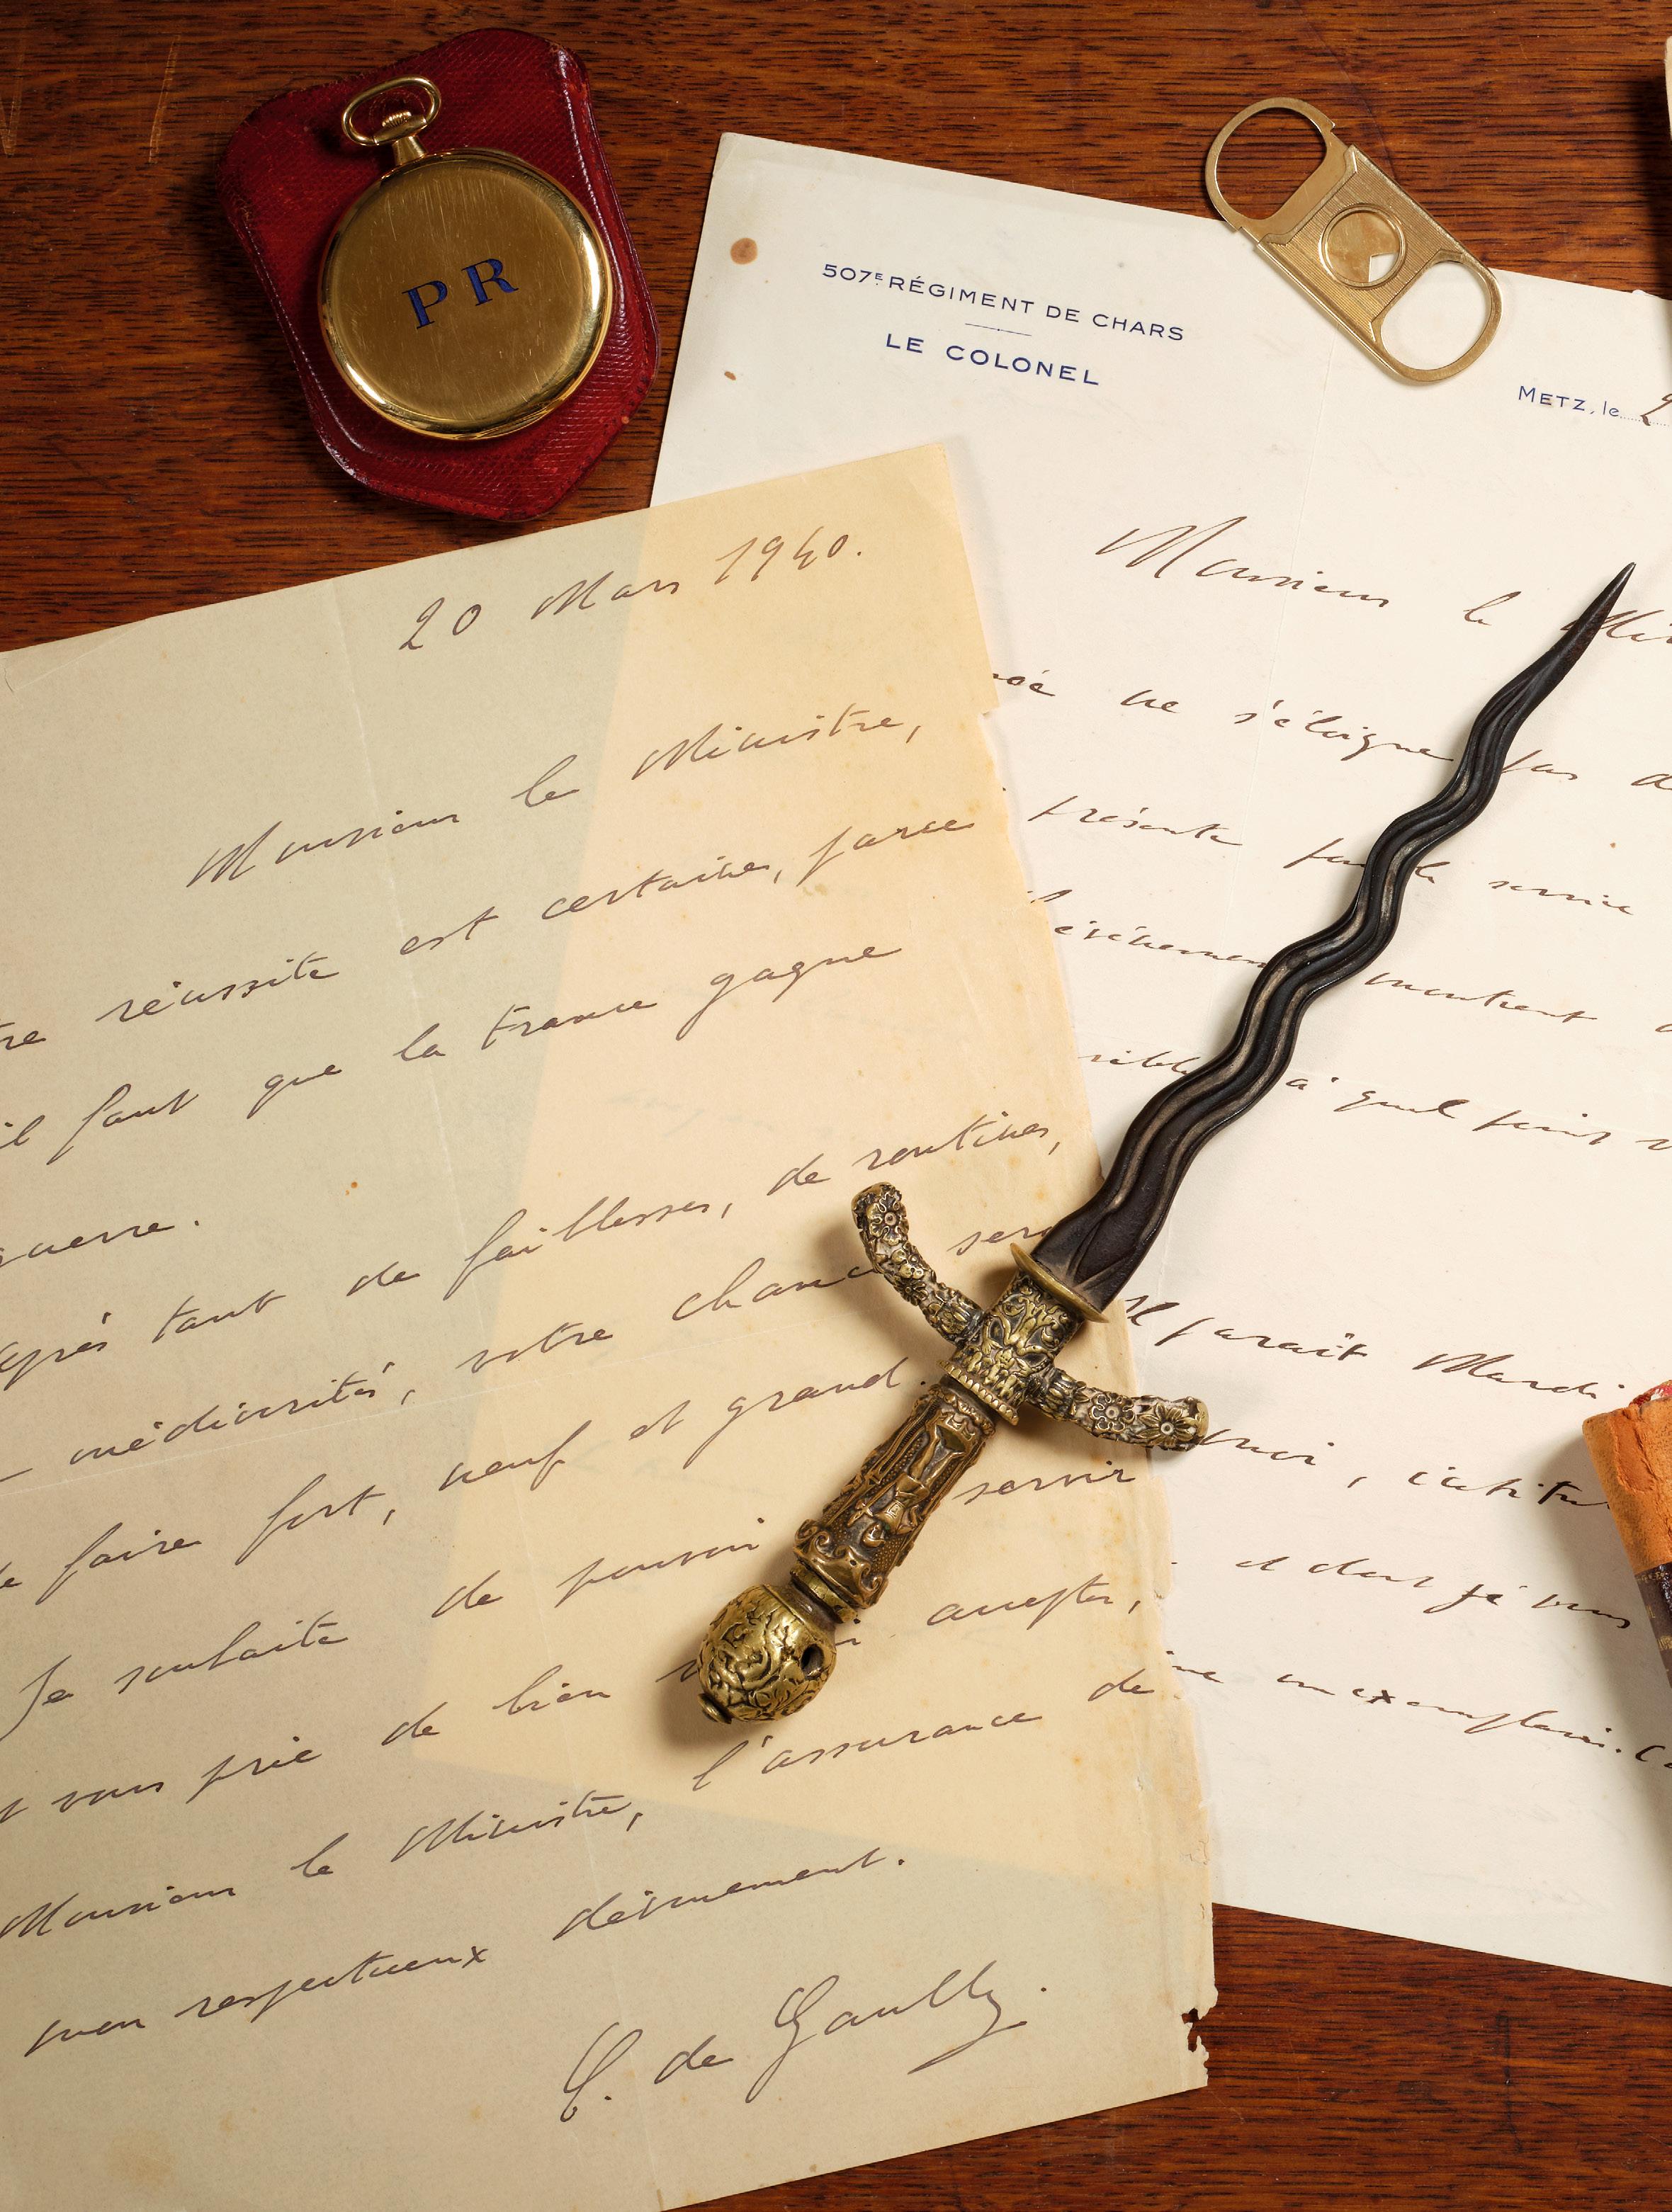 P R
507E RÉGIMENT DE CHARS
LE COLONEL
METZ, le 2
Monsieur le
ne s'éloigne pas
présente par le service
montrent
à quel point
Il paraît Mardi
et dont je vous
un exemplaire.
20 Mars 1940.
Monsieur le Ministre,
réussite est certaine, parce
il faut que la France gagne
guerre.
Après tant de faiblesses, de routines,
médiocrités, votre chance sera
de faire fort, neuf et grand.
Je souhaite de pouvoir servir
et vous prie de bien accepter,
Monsieur le Ministre, l'assurance de
mon respectueux dévouement.
C. de Gaulle.